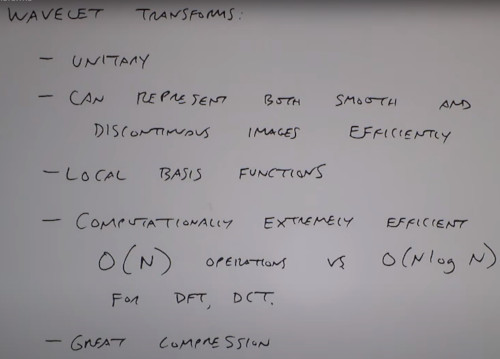 WAVELET TRANSFORMS:
- UNITARY
- CAN REPRESENT BOTH SMOOTH AND
DISCONTINUOUS IMAGES EFFICIENTLY
- LOCAL BASIS FUNCTIONS
- COMPUTATIONALLY EXTREMELY EFFICIENT
O(N) OPERATIONS VS O(N log N)
FOR DFT, DCT.
- GREAT COMPRESSION